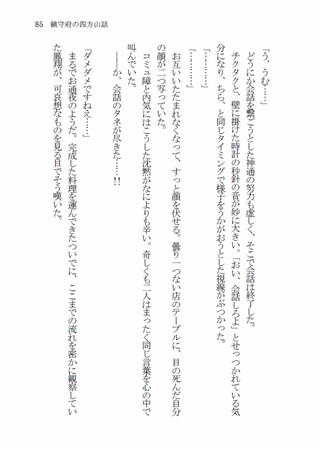 85　鎮守府の四方山話
「う、うむ……」
　どうにか会話を繋ごうとした神通の努力も虚しく、そこで会話は終了した。
　チクタクと、壁に掛けた時計の秒針の音が妙に大きい。「おい、会話しろよ」とせっつかれている気
分になり、ちら、と同じタイミングで様子をうかがおうとした視線がぶつかった。
「………」
「………」
　お互いいたたまれなくなって、すっと顔を伏せる。曇り一つない店のテーブルに、目の死んだ自分
の顔が二つ写っていた。
　コミュ障と内気にはこうした沈黙がなによりも辛い。奇しくも二人はまったく同じ言葉を心の中で
叫んでいた。
　――か、会話のタネが尽きた……!!
「ダメダメですねえ……」
　まるでお通夜のようだ。完成した料理を運んできたついでに、ここまでの流れを密かに観察してい
た鳳翔が、可哀想なものを見る目でそう嘆いた。